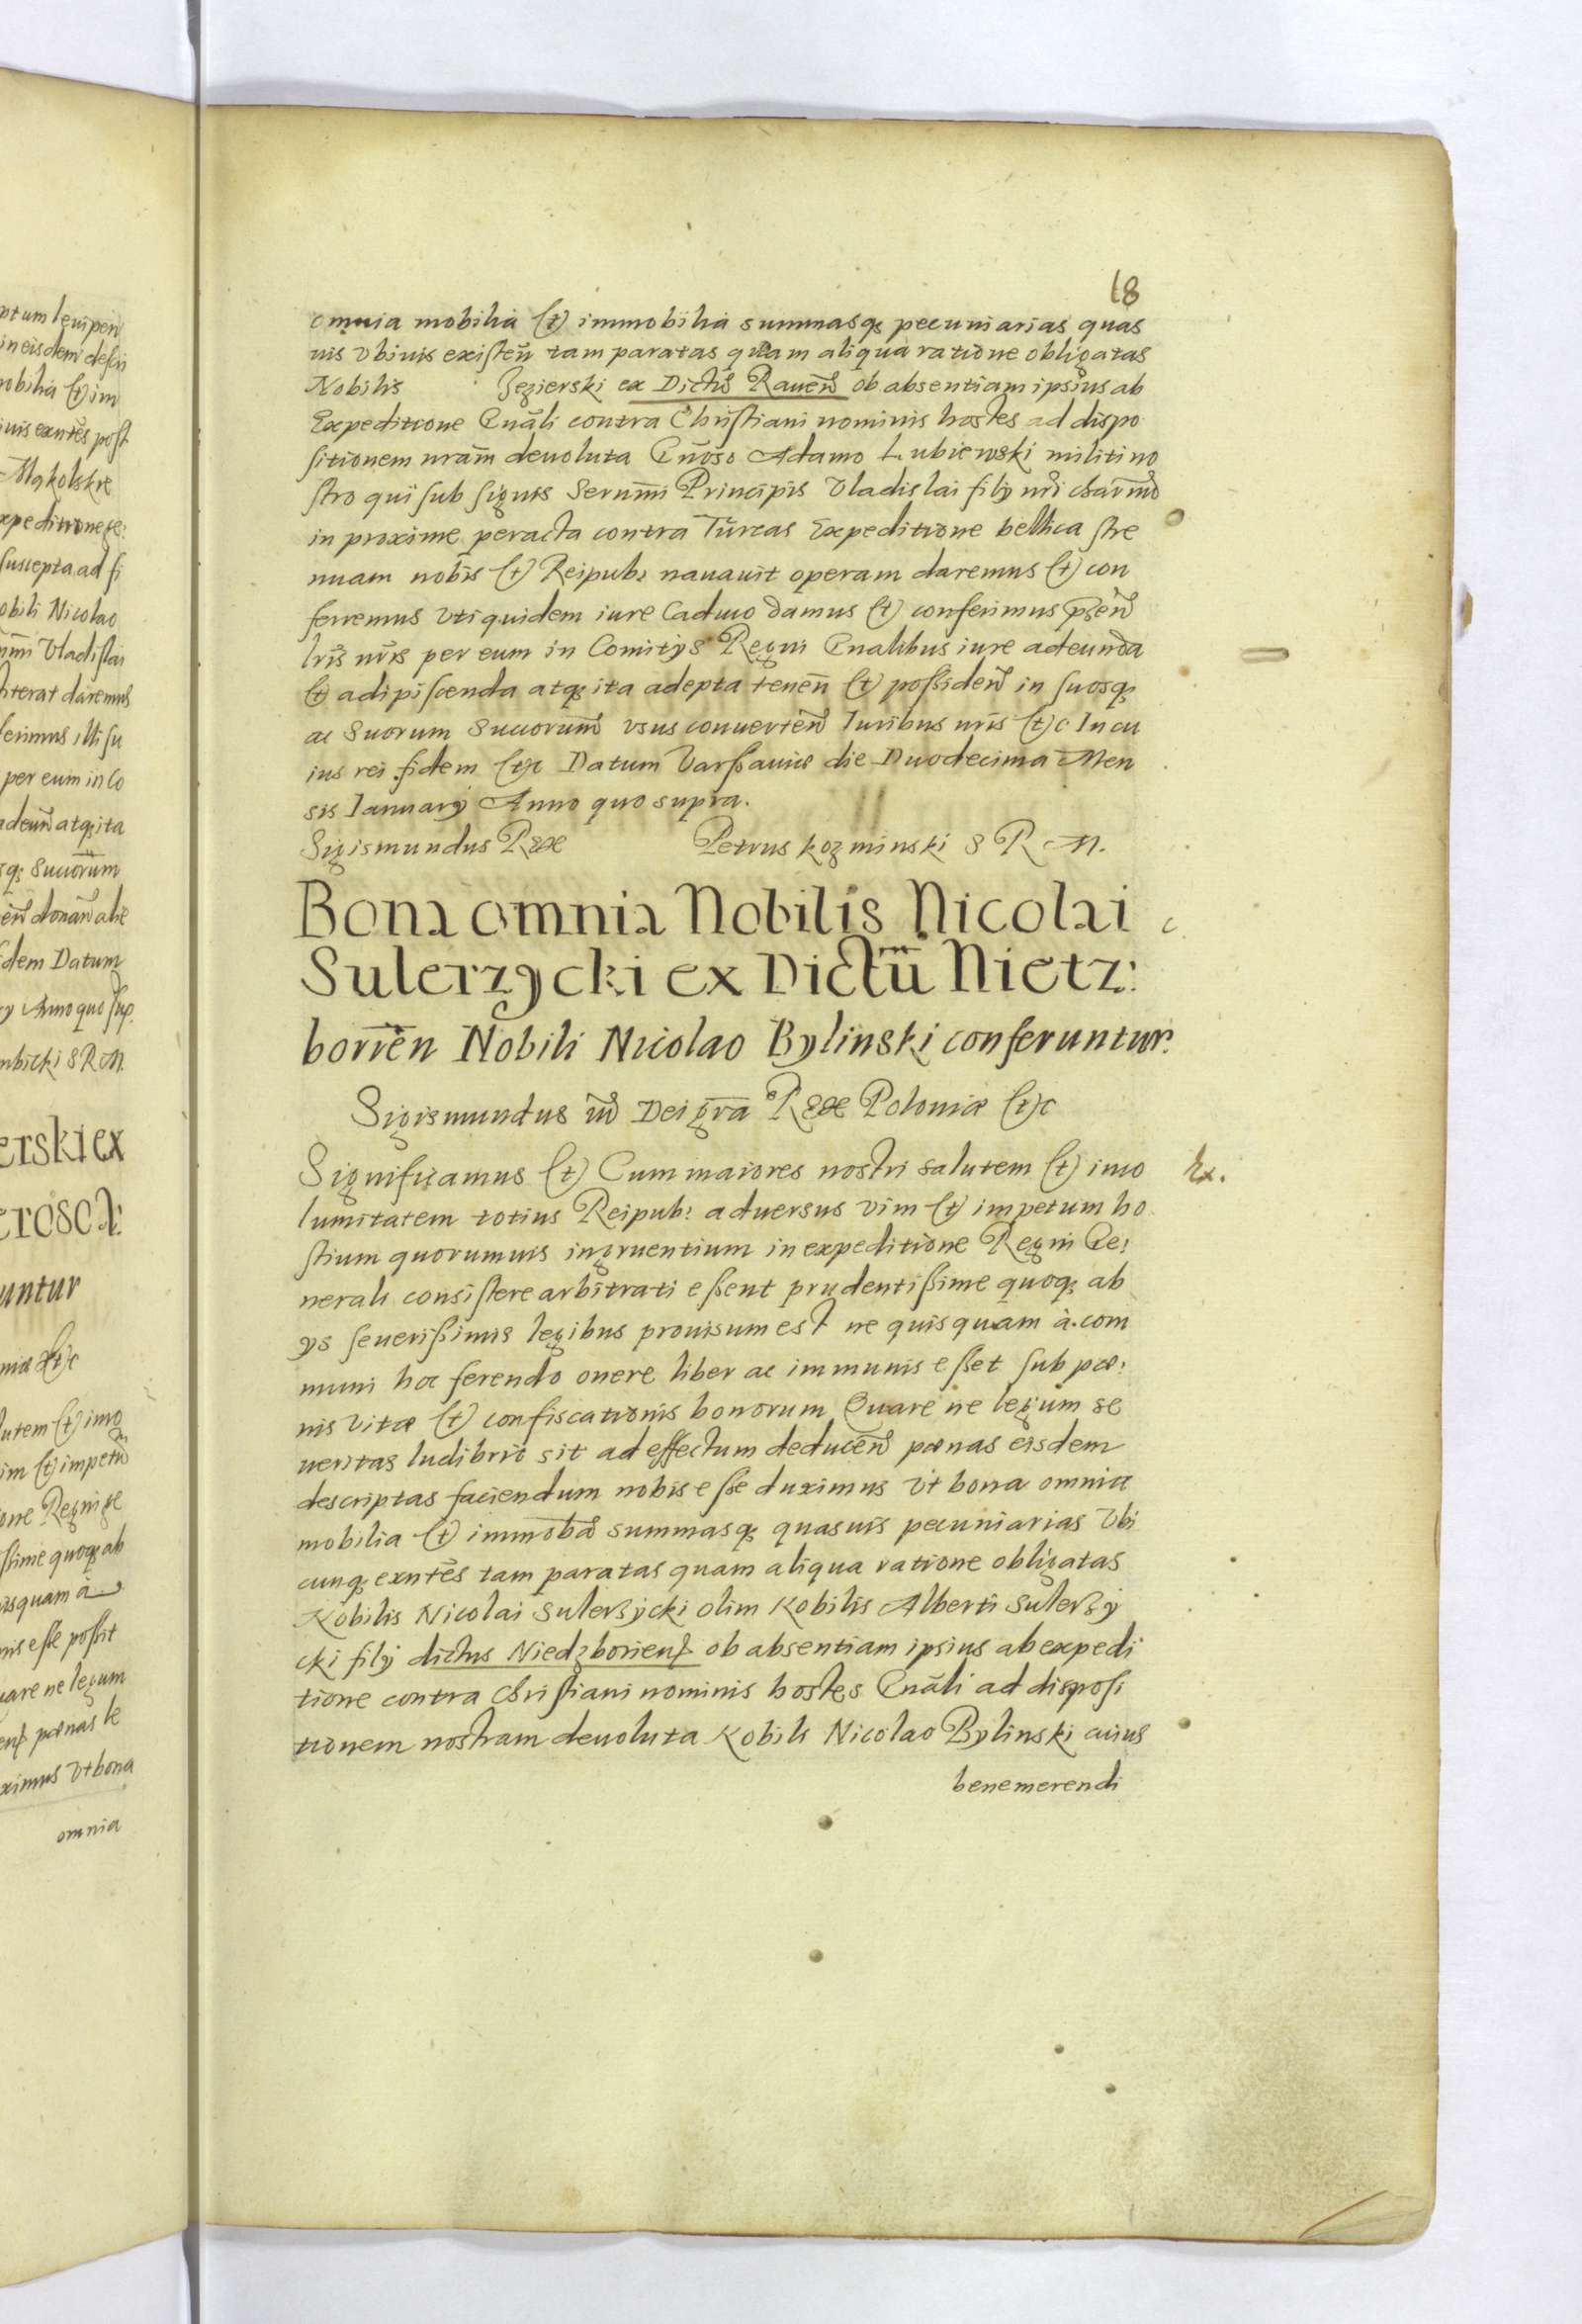 18
omnia mobilia (et) immobilia summasq; pecuniarias quas
uis vbiuis existeñ tam paratas quam aliqua ratione obligatas
Nobilis Jezierski ex Dictũs Raueñ ob absentiam ipsius ab
Expeditione Gnãli contra Christiani nominis hostes ad dispo
sitionem nrãm deuoluta Gnõso Adamo Lubiewski militi no
stro qui sub signis Serenmi Principis Vladislai filij nri charmi
in proxime peracta contra Turcas Expeditione bellica stre
nuam nobis (et) Reipub: nauauit operam daremus (et) con
ferremus vti quidem iure Caduco damus (et) conferimus pseñ
lris nris per eum in Comitijs Regni Gnalibus iure adeunda
(et) adipiscenda atq; ita adepta teneñ (et) possideñ in suosq;
ac Suorum Succorum vsus conuerteñ Iuribus nris (et)c In cu
ius rei fidem (et)c Datum Varssauiæ die Duodecima Men
sis Ianuarij Anno quo supra.
Sigismundus Rex Petrus kozminski S R M.
Bona omnia Nobilis Nicolai
Sulerzycki ex Dictũ Nietz:
borieñ Nobili Nicolao Bylinski conferuntur.
c.
Sigismundus iii Dei grã Rex Poloniæ (et)c
Significamus (et) Cum maiores nostri salutem (et) inco
lumitatem totius Reipub: aduersus vim (et) impetum ho
stium quorumuis ingruentium in expeditione Regni Ge:
nerali consistere arbitrati essent prudentissime quoq; ab
ijs seuerissimis legibus prouisum est ne quisquam à com
muni hoc ferendo onere liber ac immunis esset sub pæ:
nis vitæ (et) confiscationis bonorum Quare ne legum se
ueritas ludibrio sit ad effectum deduceñ pœnas eisdem
descriptas faciendum nobis esse duximus vt bona omnia
mobilia (et) immoba summasq; quasuis pecuniarias vbi
cunq; exntẽs tam paratas quam aliqua ratione obligatas
Nobilis Nicolai Sulerzycki olim Nobilis Alberti Sulerzy
cki filij dictus Niedzboriens ob absentiam ipsius ab expedi
tione contra christiani nominis hostes Gnãli ad disposi
tionem nostram deuoluta Nobili Nicolao Bylinski cuius
benemerendi